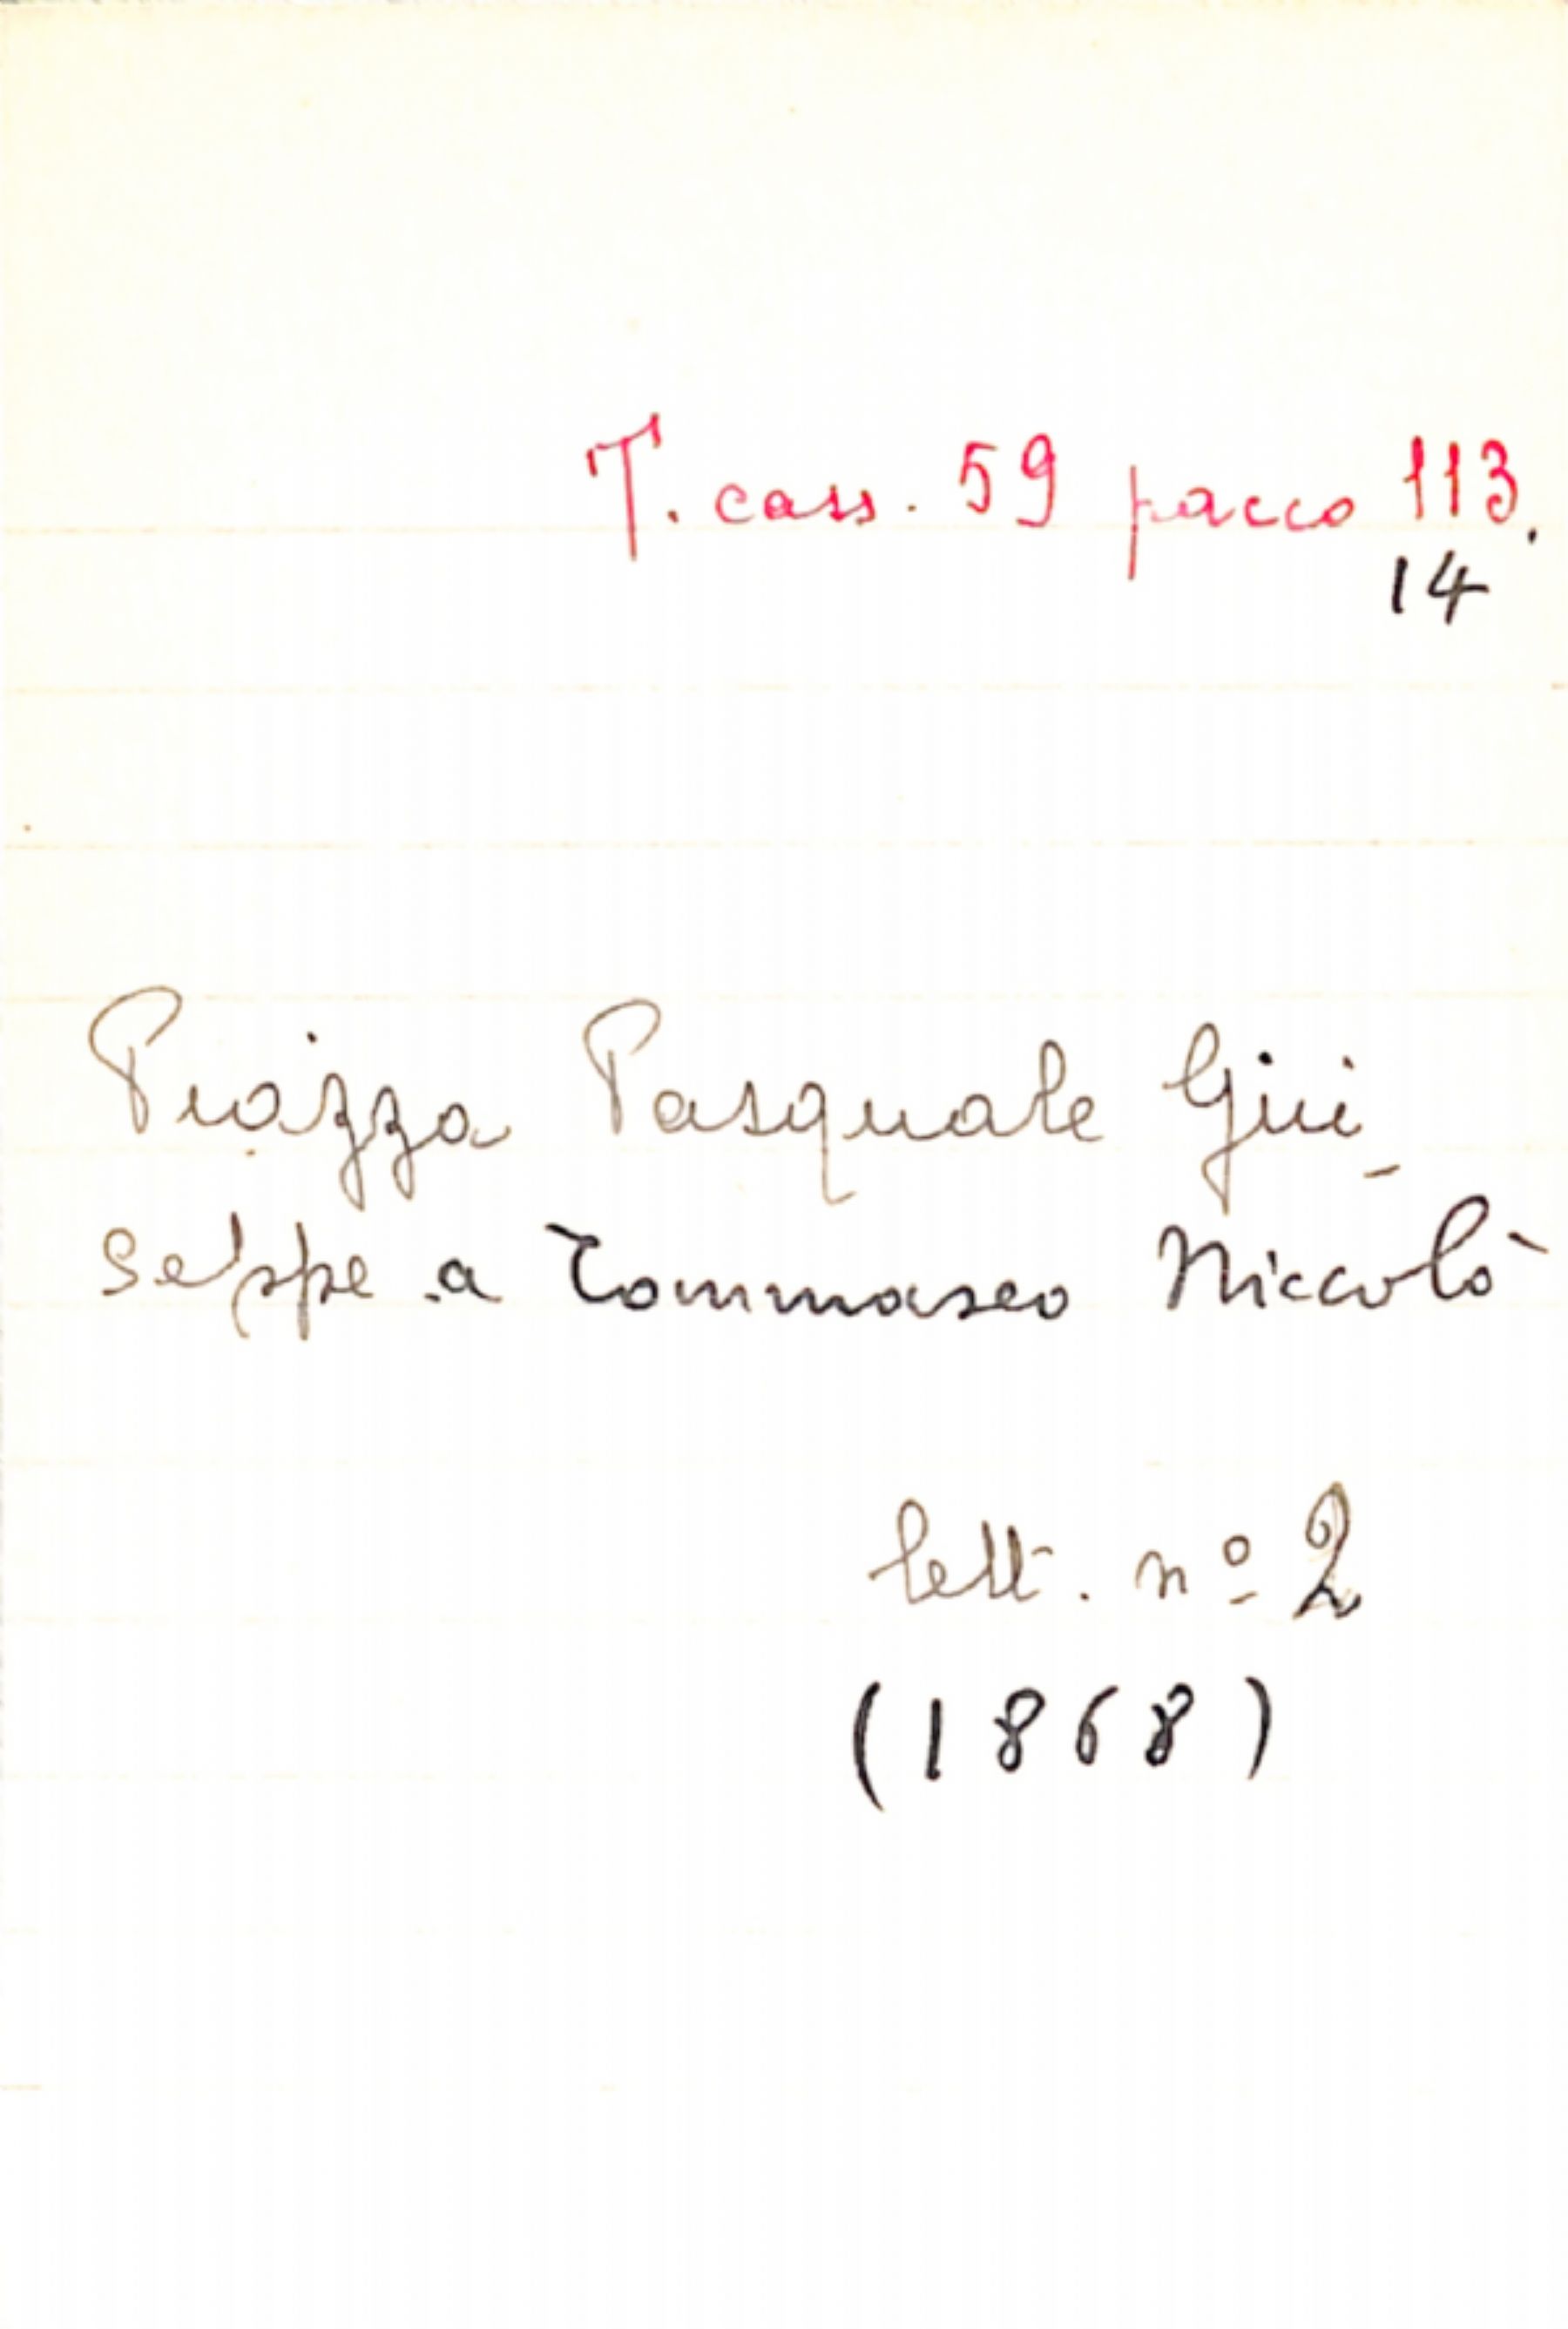 T. cass. 59 pacco 113.
14
Piazza Pasquale Giu-
seppe a Tommaseo Niccolò
lett. nº 2
(1868)